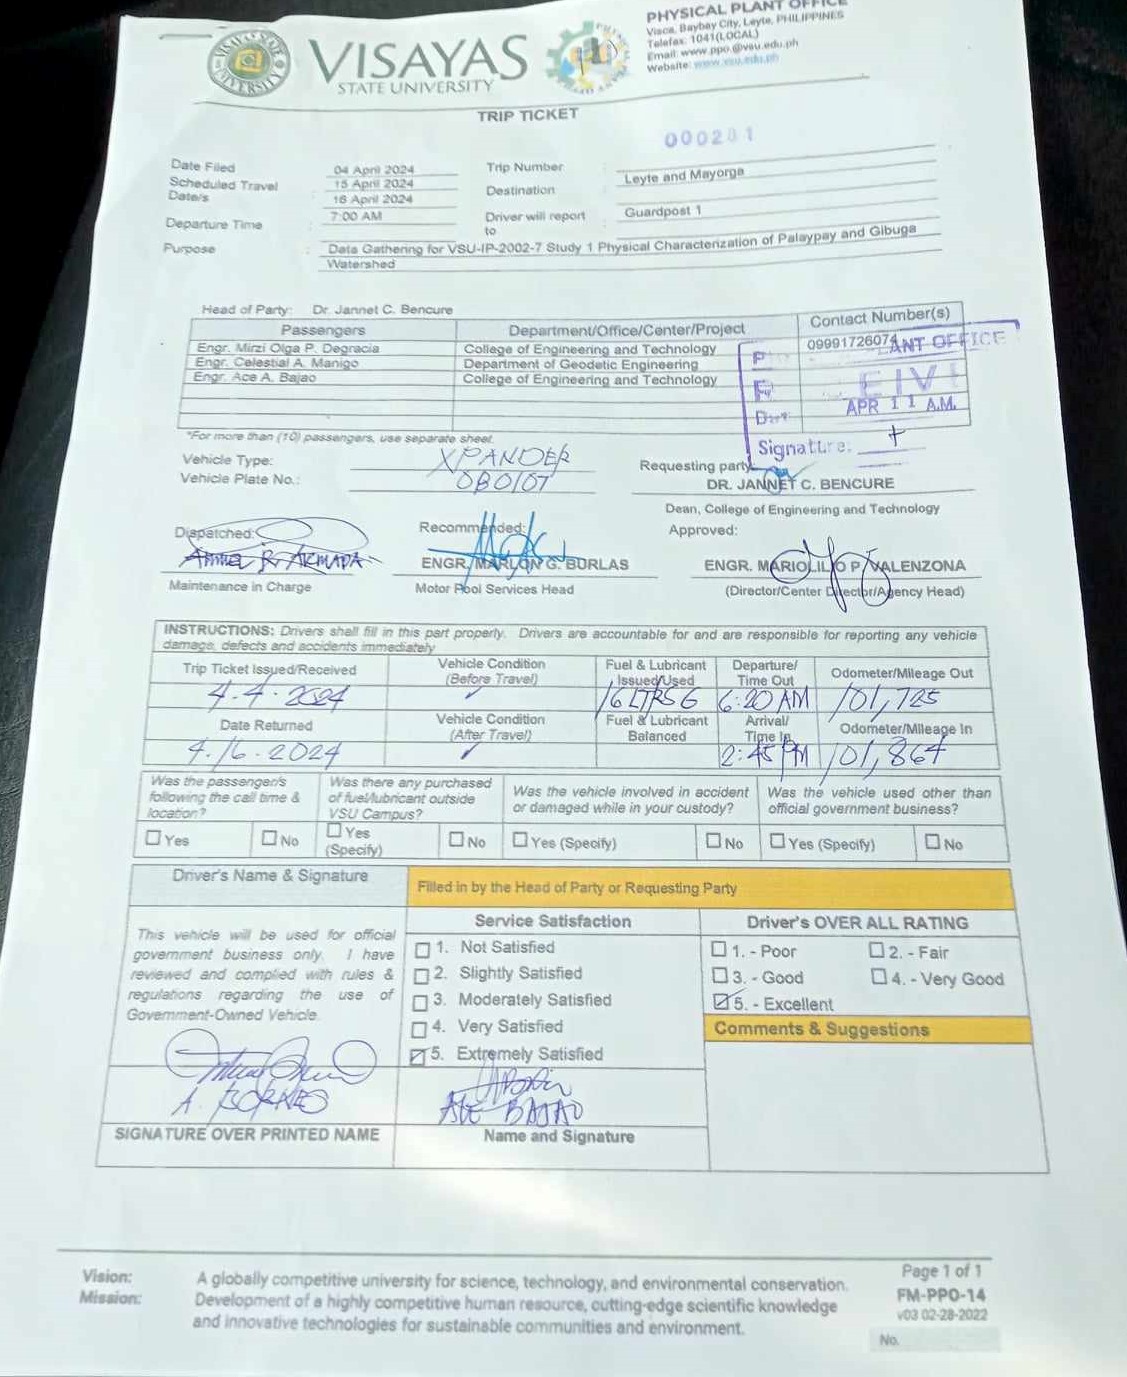 VISAYAS
STATE UNIVERSITY
PHYSICAL PLANT OFFICE
Visca, Baybay City, Leyte, PHILIPPINES
Telefax: 1041(LOCAL)
Email: www.ppo.@vsu.edu.ph
Website: www.vsu.edu.ph
TRIP TICKET
000281
Date Filed 04 April 2024 Trip Number
Scheduled Travel 15 April 2024 Destination Leyte and Mayorga
Date/s 16 April 2024
Departure Time 7:00 AM Driver will report to Guardpost 1
Purpose : Data Gathering for VSU-IP-2002-7 Study 1 Physical Characterization of Palaypay and Gibuga
Watershed
Head of Party: Dr. Jannet C. Bencure
Passengers Department/Office/Center/Project Contact Number(s)
Engr. Mirzi Olga P. Degracia College of Engineering and Technology 09991726074
Engr. Celestial A. Manigo Department of Geodetic Engineering
Engr. Ace A. Bajao College of Engineering and Technology
ANT OFFICE
EIV
APR 11 A.M.
Signature:
*For more than (10) passengers, use separate sheet.
Vehicle Type: XPANDER
Vehicle Plate No.: 0B0107
Requesting party
DR. JANNET C. BENCURE
Dean, College of Engineering and Technology
Dispatched: Recommended: Approved:
ARMADA
ENGR. MARLON G. BURLAS
ENGR. MARIOLILIO P. VALENZONA
Maintenance in Charge Motor Pool Services Head (Director/Center Director/Agency Head)
INSTRUCTIONS: Drivers shall fill in this part properly. Drivers are accountable for and are responsible for reporting any vehicle
damage, defects and accidents immediately
Trip Ticket Issued/Received Vehicle Condition (Before Travel) Fuel & Lubricant Issued/Used Departure/ Time Out Odometer/Mileage Out
4.4.2024 16 LTRS G 6:20 AM 101,725
Date Returned Vehicle Condition (After Travel) Fuel & Lubricant Balanced Arrival/ Time In Odometer/Mileage In
4.16.2024 2:45 PM 101,864
Was the passenger/s following the call time & location?
Was there any purchased of fuel/lubricant outside VSU Campus?
Was the vehicle involved in accident or damaged while in your custody?
Was the vehicle used other than official government business?
Yes No Yes (Specify) No Yes (Specify) No Yes (Specify) No
Driver's Name & Signature
Filled in by the Head of Party or Requesting Party
This vehicle will be used for official
government business only. I have
reviewed and complied with rules &
regulations regarding the use of
Government-Owned Vehicle.
A. BORNEO
SIGNATURE OVER PRINTED NAME
Service Satisfaction
1. Not Satisfied
2. Slightly Satisfied
3. Moderately Satisfied
4. Very Satisfied
5. Extremely Satisfied
ACE BAJAO
Name and Signature
Driver's OVER ALL RATING
1. - Poor 2. - Fair
3. - Good 4. - Very Good
5. - Excellent
Comments & Suggestions
Vision: A globally competitive university for science, technology, and environmental conservation.
Mission: Development of a highly competitive human resource, cutting-edge scientific knowledge
and innovative technologies for sustainable communities and environment.
Page 1 of 1
FM-PPO-14
v03 02-28-2022
No.